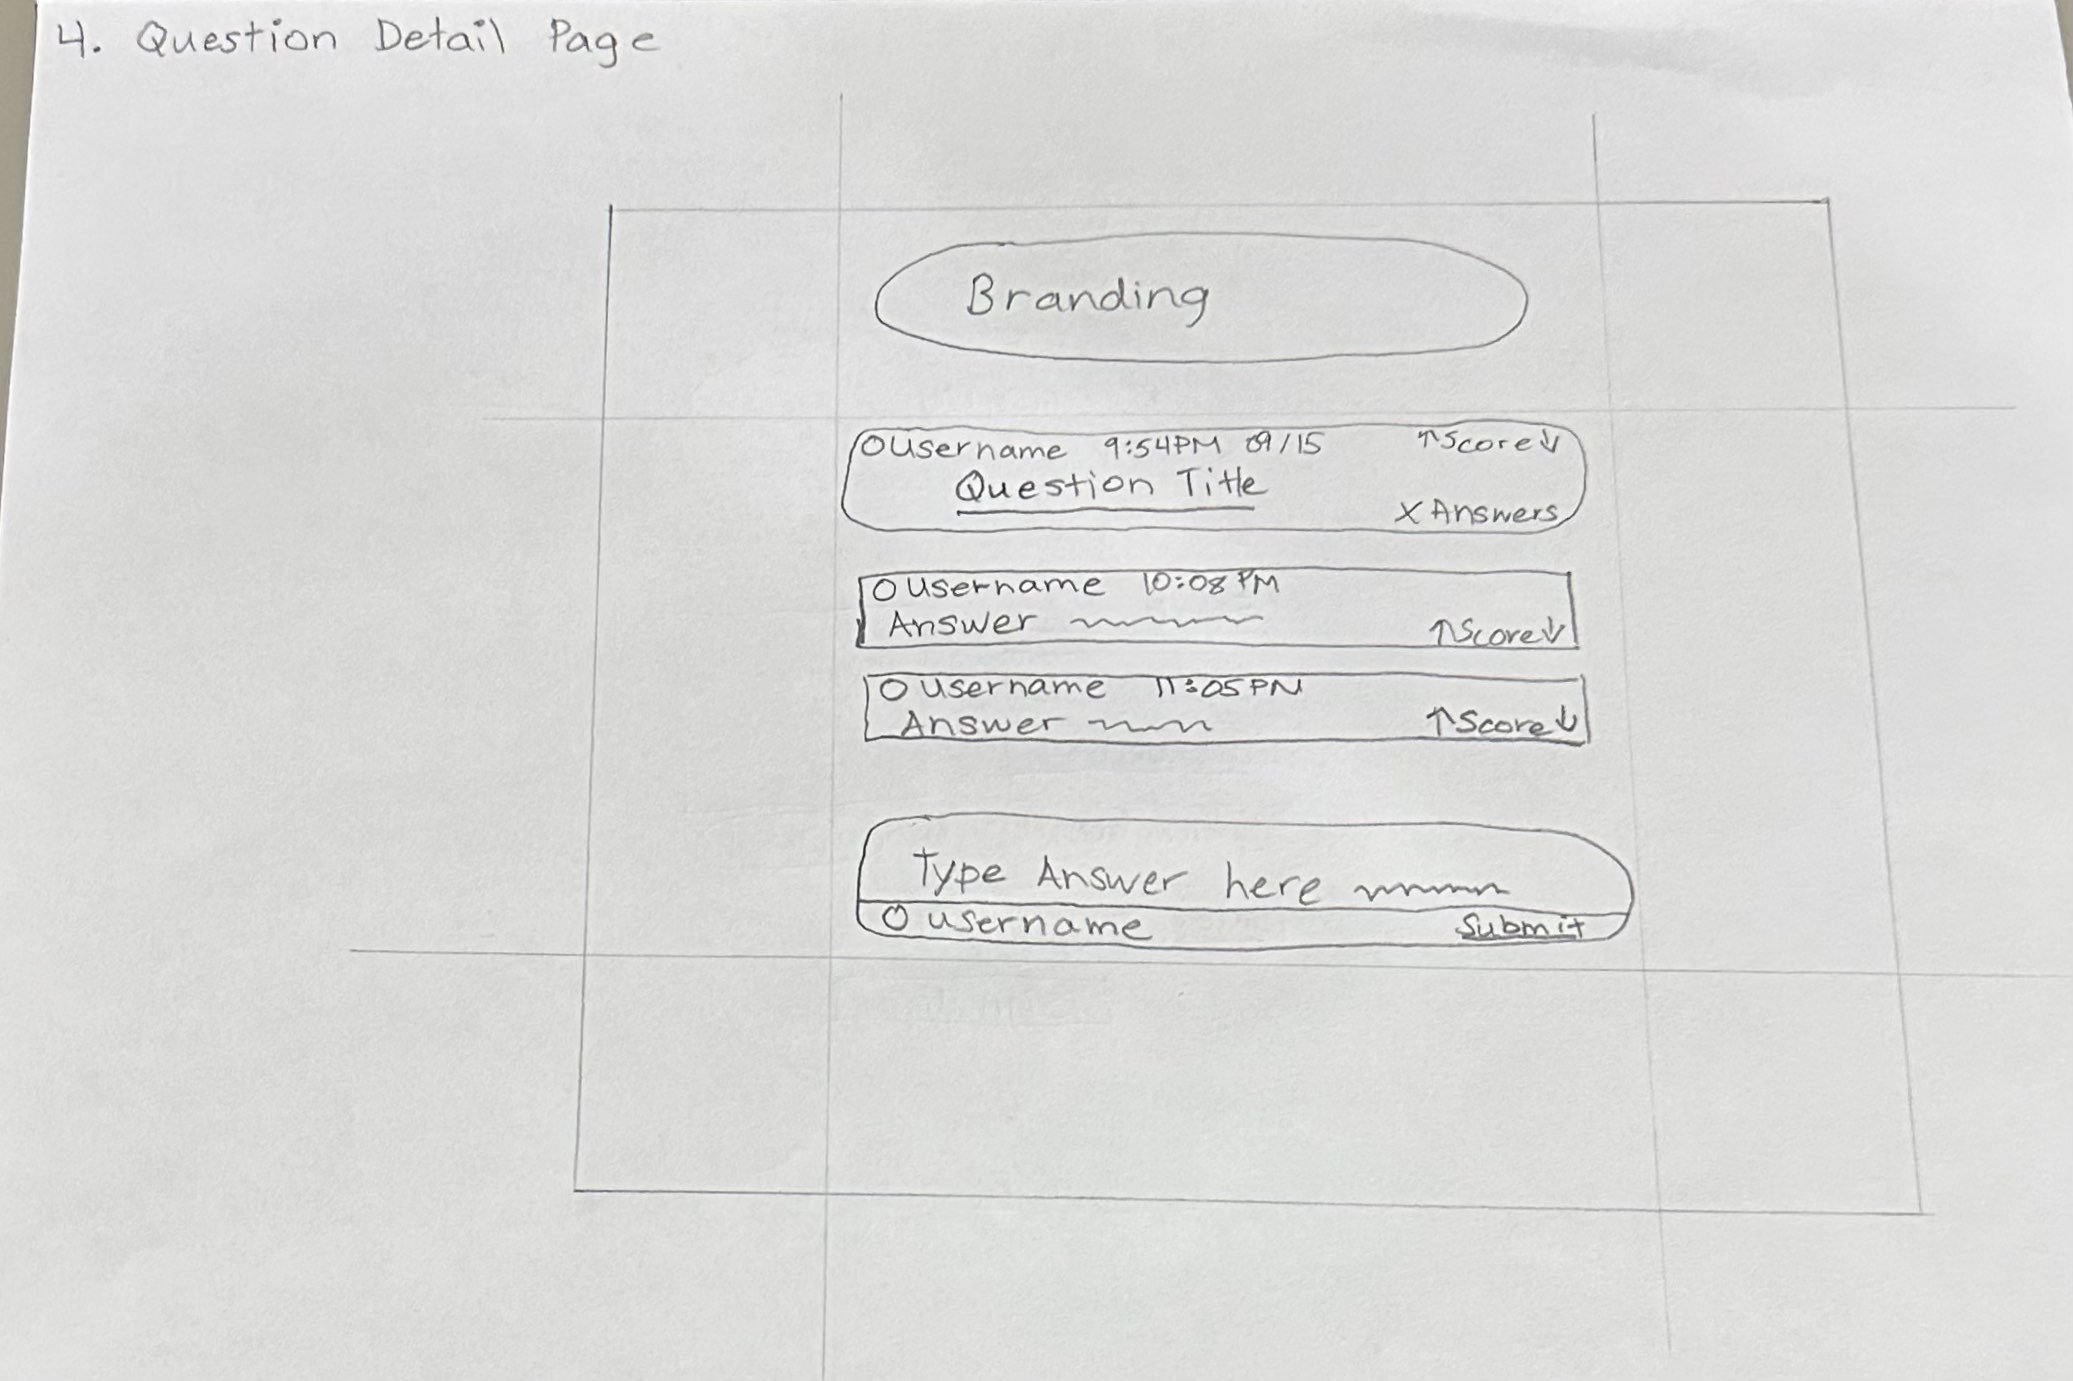 4. Question Detail Page
Branding
Username 9:54PM 09/15 ↑Score↓
Question Title
X Answers
username 10:08 PM
Answer
↑Score↓
username 11:05 PM
Answer ↑Score↓
Type Answer here
username Submit